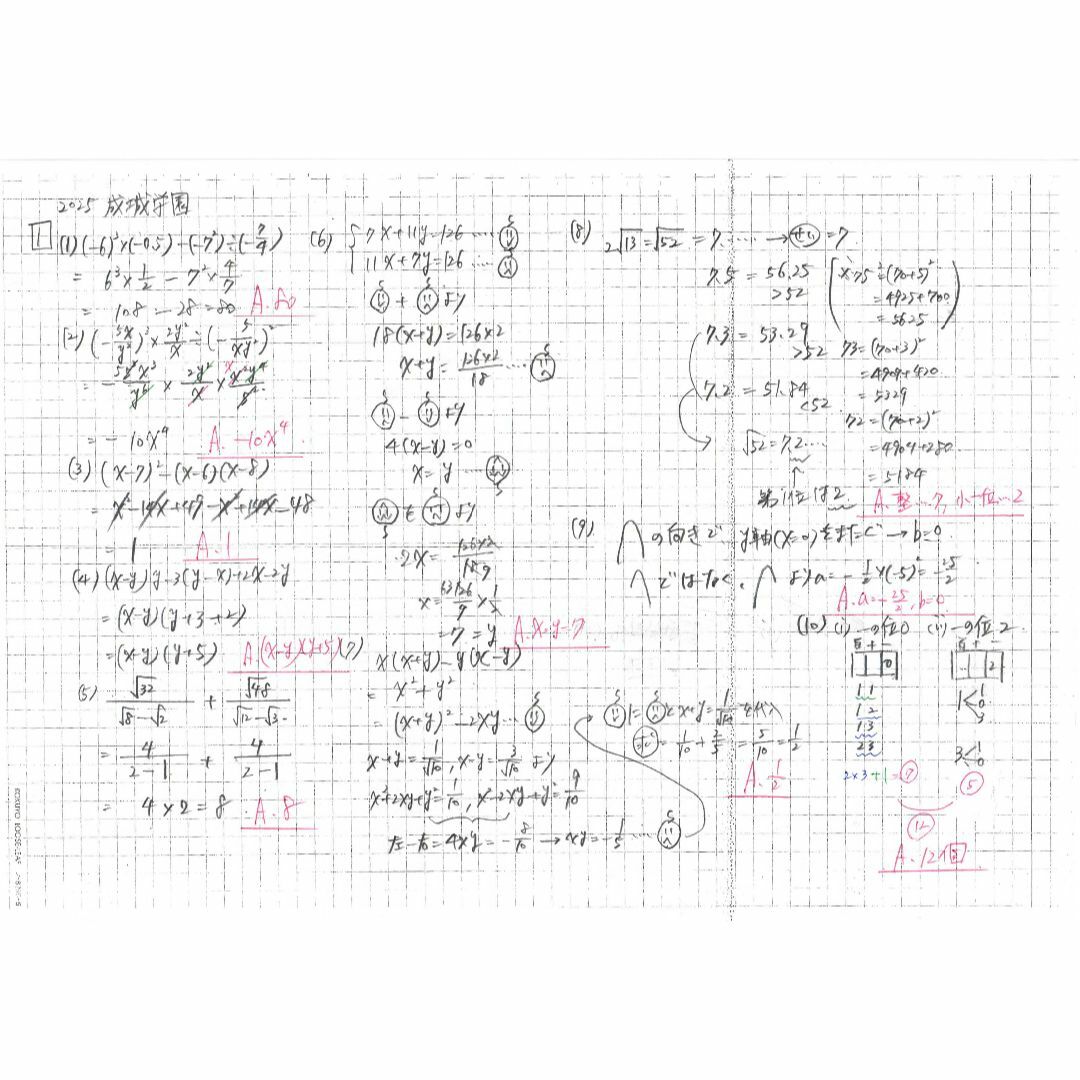 2025 成城学園
1
(1) (-6)³×(-0.5)-(-7²)÷(-7/4)
= 6³×1/2 - 7²×4/7
= 108 - 28 = 80 A. 80
(2) (-5x/y²)³×2y²/x÷(-5/xy)²
= -10x⁴ A. -10x⁴
(3) (x-7)²-(x-6)(x-8)
= x²-14x+49-x²+14x-48
= 1 A. 1
(4) (x-y)y-3(y-x)+2x-2y
= (x-y)(y+3+2)
= (x-y)(y+5) A. (x-y)(y+5)
(5) √32/(√8-√2) + √48/(√12-√3)
= 4/(2-1) + 4/(2-1)
= 4×2=8 A. 8
(6) 7x+11y=126 ……
11x+7y=126 ……
+ より
18(x+y)=126×2
x+y=126×2/18 …
- より
4(x-y)=0
x=y …
と より
2x=126×2/18
x=126/9×1/2
=7=y A. x=y=7
(7)
x(x+y)-y(x-y)
= x²+y²
= (x+y)²-2xy …
x+y=1/√10, x-y=3/√10 より
x²+2xy+y²=1/10, x²-2xy+y²=9/10
左-右=4xy=-8/10 → xy=-1/5 …
に とx+y=1/√10を代入
=1/10+2/5=5/10=1/2
A. 1/2
(8) 2√13=√52=7.…… → =7
7.5=56.25
>52
※75²=(70+5)²
=4925+700
=5625
7.3=53.29
>52
73=(70+3)²
=4909+420
=5329
7.2=51.84
<52
72=(70+2)²
=4904+280
=5184
√52=7.2…
第1位は2 A. 整…7, 小一位…2
(9) の向きで y軸(x=0)をまたぐ → b=0
ではなく、 よりa=-1/2×(-5)²=-25/2
A. a=-25/2, b=0
(10) (i) 一の位0 (ii) 一の位2
百十一 百十一
0 2
11
12
13
23
1< 1 0 3
3< 1 0
2×3+1=7
5
12
A. 12個